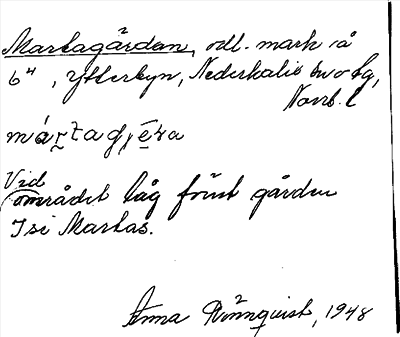 Martagärdan, odl. mark å
6⁴, Ytterbyn, Nederkalix
Norrb. l
Vid
området låg förut gården
Isi Martas.
Anna Rönnquist, 1948